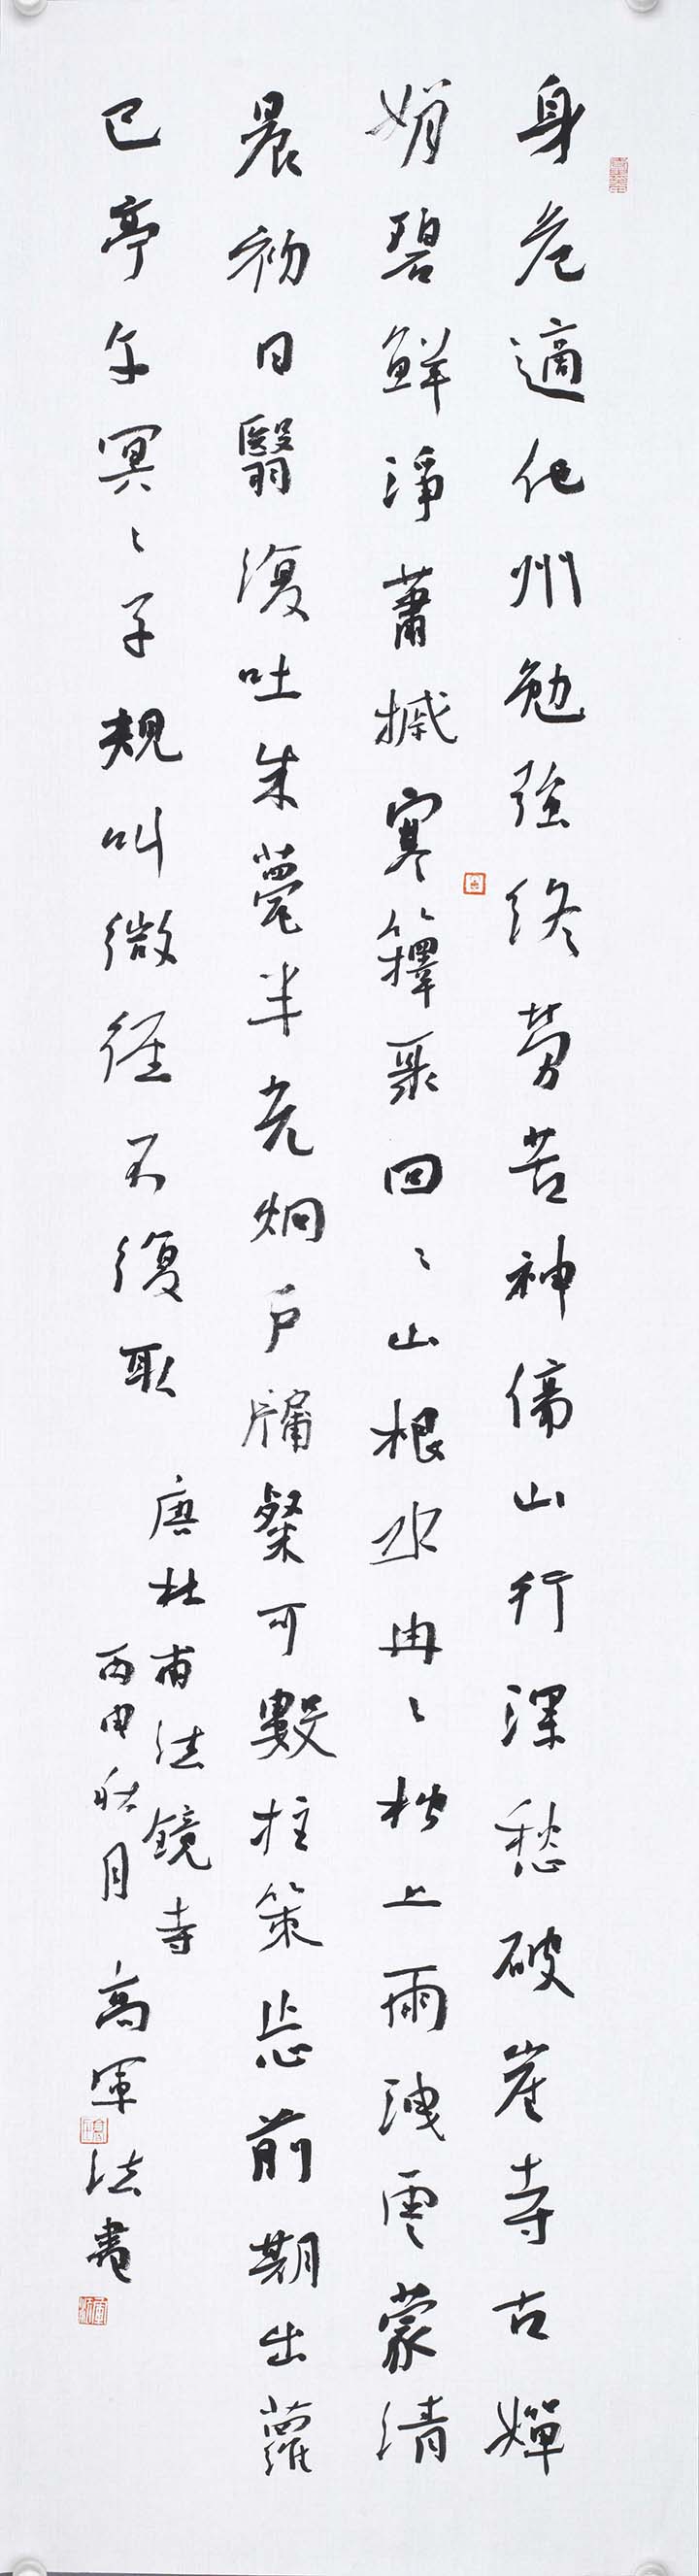 身危適他州勉強終勞苦神傷山行深愁破崖寺古嬋
娟碧鮮淨蕭摵寒籜聚回〻山根水冉〻松上雨洩雲蒙清
晨初日翳復吐朱甍半光炯戶牖粲可數拄策忘前期出蘿
已亭午冥〻子規叫微徑不復取
唐杜甫法鏡寺
丙申秋月
高軍法書